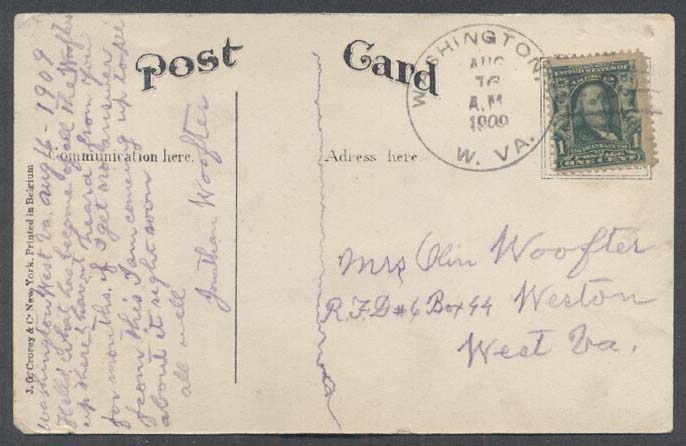 Post Card
Communication here.
Adress here
WASHINGTON,
AUG
16
A.M
1909
W. VA.
UNITED STATES OF AMERICA
1
1
FRANKLIN
ONE CENT
Mrs Olin Woofter
R.F.D #6 Box 44 Weston
West Va.
J. G. Crorey & Co New York. Printed in Belgium
Washington West Va. aug 16 - 1909
Hello what has become of all the Woofters
up there? havent heard from you
for months. if I get no answer
from this I am coming up to see
about it right soon
all well
Jonathan Woofter